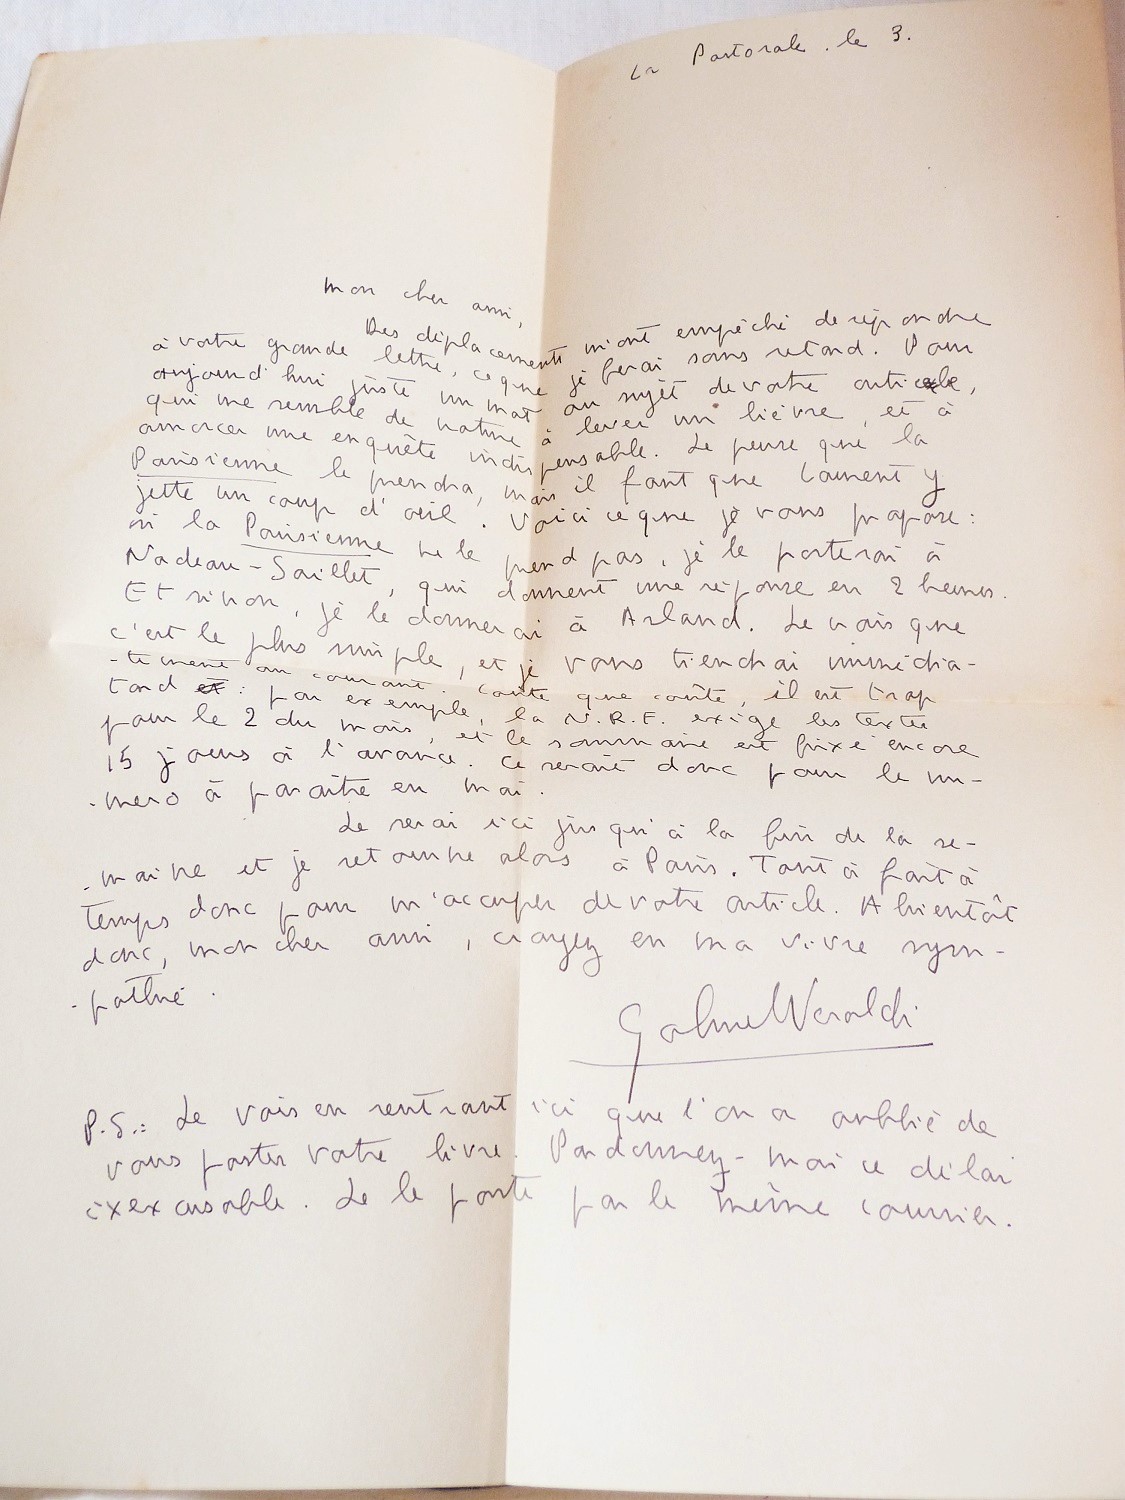 La Pastorale. le 3.
Mon cher ami,
Des déplacements m'ont empêché de répondre
à votre grande lettre, ce que je ferai sans retard. Pour
aujourd'hui juste un mot au sujet de votre article,
qui me semble de nature à lever un lièvre, et à
amorcer une enquête indispensable. Je pense que la
Parisienne le prendra, mais il faut que Laurent y
jette un coup d'œil. Voici ce que je vous propose :
si la Parisienne ne le prend pas, je le porterai à
Nadeau-Saillet, qui donnent une réponse en 2 heures.
Et sinon, je le donnerai à Arland. Je crois que
c'est le plus simple, et je vous tiendrai immédia-
-tement au courant. Coûte que coûte, il est trop
tard : par exemple, la N.R.F. exige les textes
pour le 2 du mois, et le sommaire est fixé encore
15 jours à l'avance. Ce serait donc pour le nu-
-mero à paraître en mai.
Je serai ici jusqu'à la fin de la se-
-maine et je retourne alors à Paris. Tout à fait à
temps donc pour m'occuper de votre article. A bientôt
donc, mon cher ami, croyez en ma vive sym-
-pathie.
Gabriel Veraldi
P.S.: Je vois en rentrant ici que l'on a oublié de
vous poster votre livre. Pardonnez-moi ce délai
inexcusable. Je le poste par le même courrier.